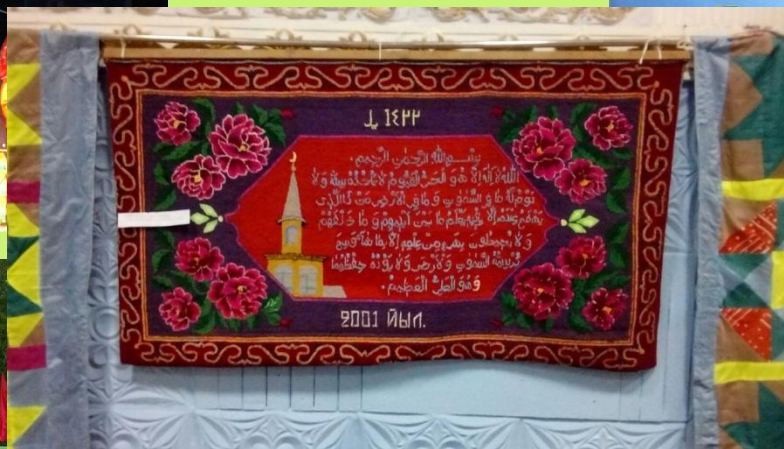 ١٤٢٢ يل
بِسْمِ اللهِ الرَّحْمٰنِ الرَّحِيمِ .
اَللهُ لَا اِلٰهَ اِلَّا هُوَ الْحَيُّ الْقَيُّومُ لَا تَأْخُذُهُ سِنَةٌ وَلَا
نَوْمٌ لَهُ مَا فِي السَّمٰوَاتِ وَ مَا فِي الْاَرْضِ مَنْ ذَا الَّذِي
يَشْفَعُ عِنْدَهُ اِلَّا بِاِذْنِهِ يَعْلَمُ مَا بَيْنَ اَيْدِيهِمْ وَ مَا خَلْفَهُمْ
وَ لَا يُحِيطُونَ بِشَيْءٍ مِنْ عِلْمِهِ اِلَّا بِمَا شَاءَ وَسِعَ
كُرْسِيُّهُ السَّمٰوَاتِ وَ الْاَرْضَ وَ لَا يَؤُدُهُ حِفْظُهُمَا
وَهُوَ الْعَلِيُّ الْعَظِيمُ .
2001 ЙЫЛ.